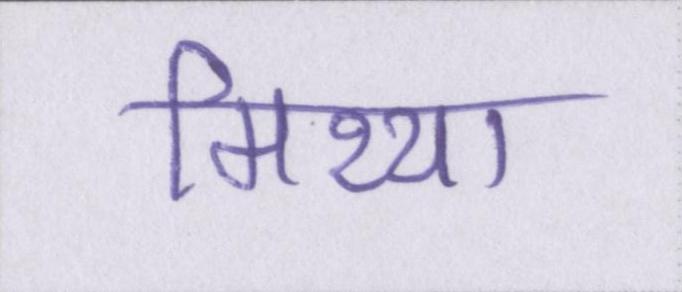 मिथ्या